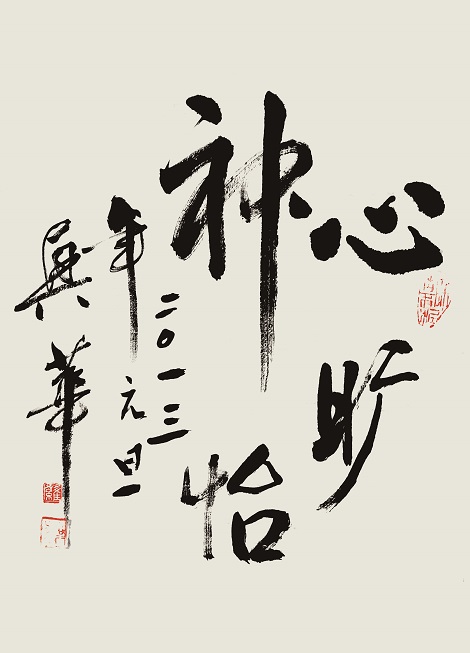 心旷
神怡
二〇一三
年元旦
吳華